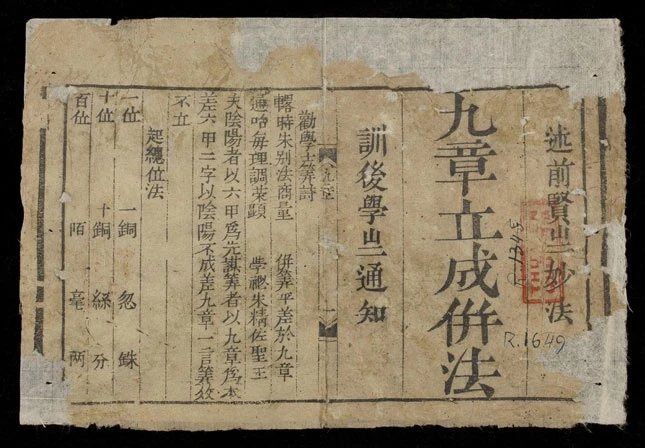 述前賢㞢妙法
九章立成併法
訓後學㞢通知
勸學士筭詩
時朱別法商量 併筭平差於九章
通哈每理調荣顕 學 朱精佐聖王
夫陰陽者以六甲爲先 筭者以九章爲本
差六甲二字以陰陽不成差九章一言筭效
不立
起總位法
一位 一銅 忽 銖
十位 十銅 絲 分
百位 陌 毫 两
R.1649